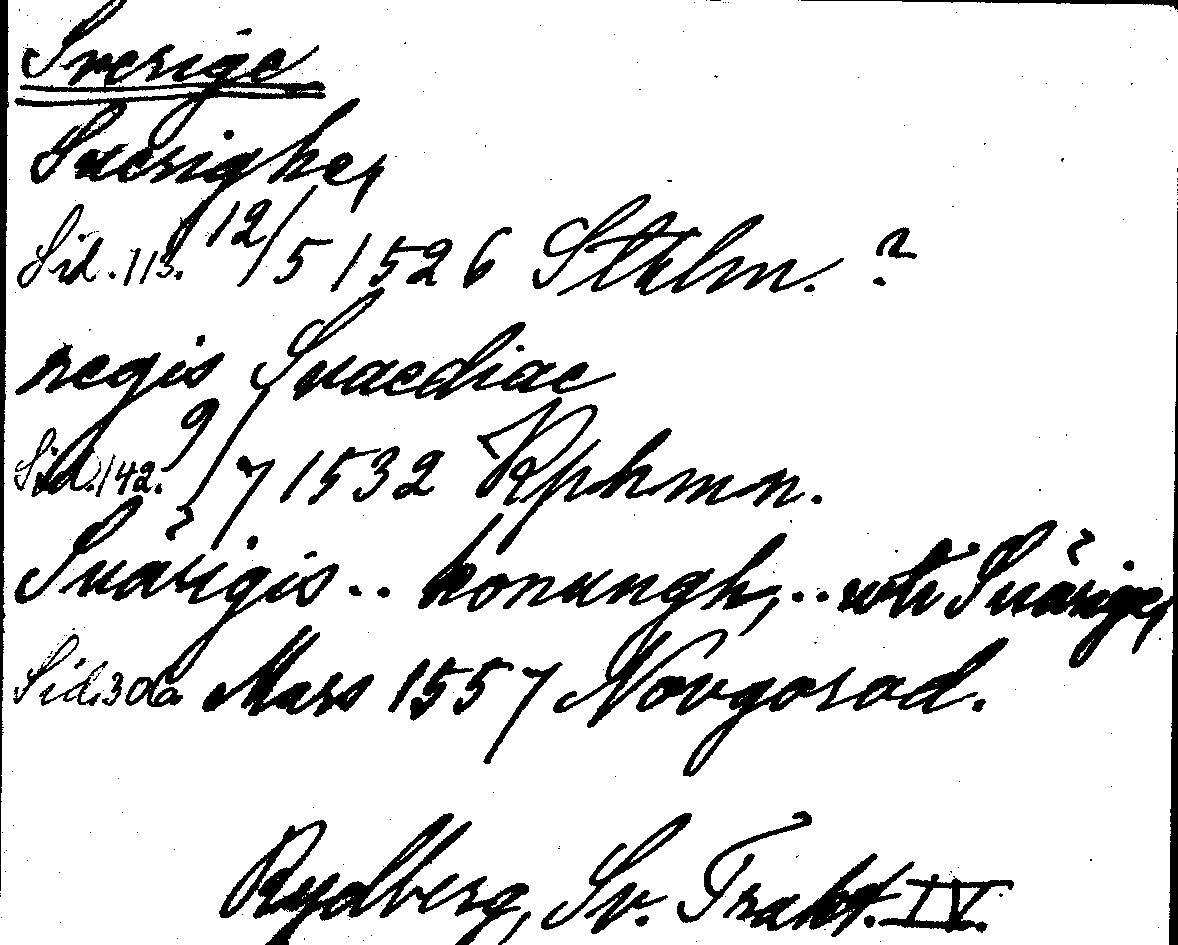 Sverige
Suerighe,
Sid. 113. 12/5 1526 Sthlm. ?
regis Suaediae
Sid. 142. 9/7 1532 Kphmn.
Suärigis .. konungh, .. uti Suärige,
Sid. 306. Mars 1557 Novgorod.
Rydberg, Sv. Trakt. IV.